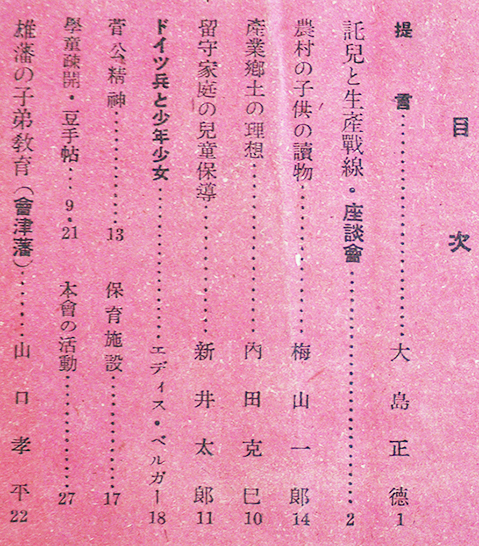 目次
提言……………………大島正德 1
託兒と生產戰線・座談會…………………… 2
農村の子供の讀物……………梅山一郞 14
產業鄕土の理想……………內田克巳 10
留守家庭の兒童保導……………新井太郞 11
ドイツ兵と少年少女……………エディス・ベルガー 18
菅公精神…………13 保育施設…………17
學童疎開・豆手帖…9・21 本會の活動…………27
雄藩の子弟敎育（會津藩）……山口孝平 22